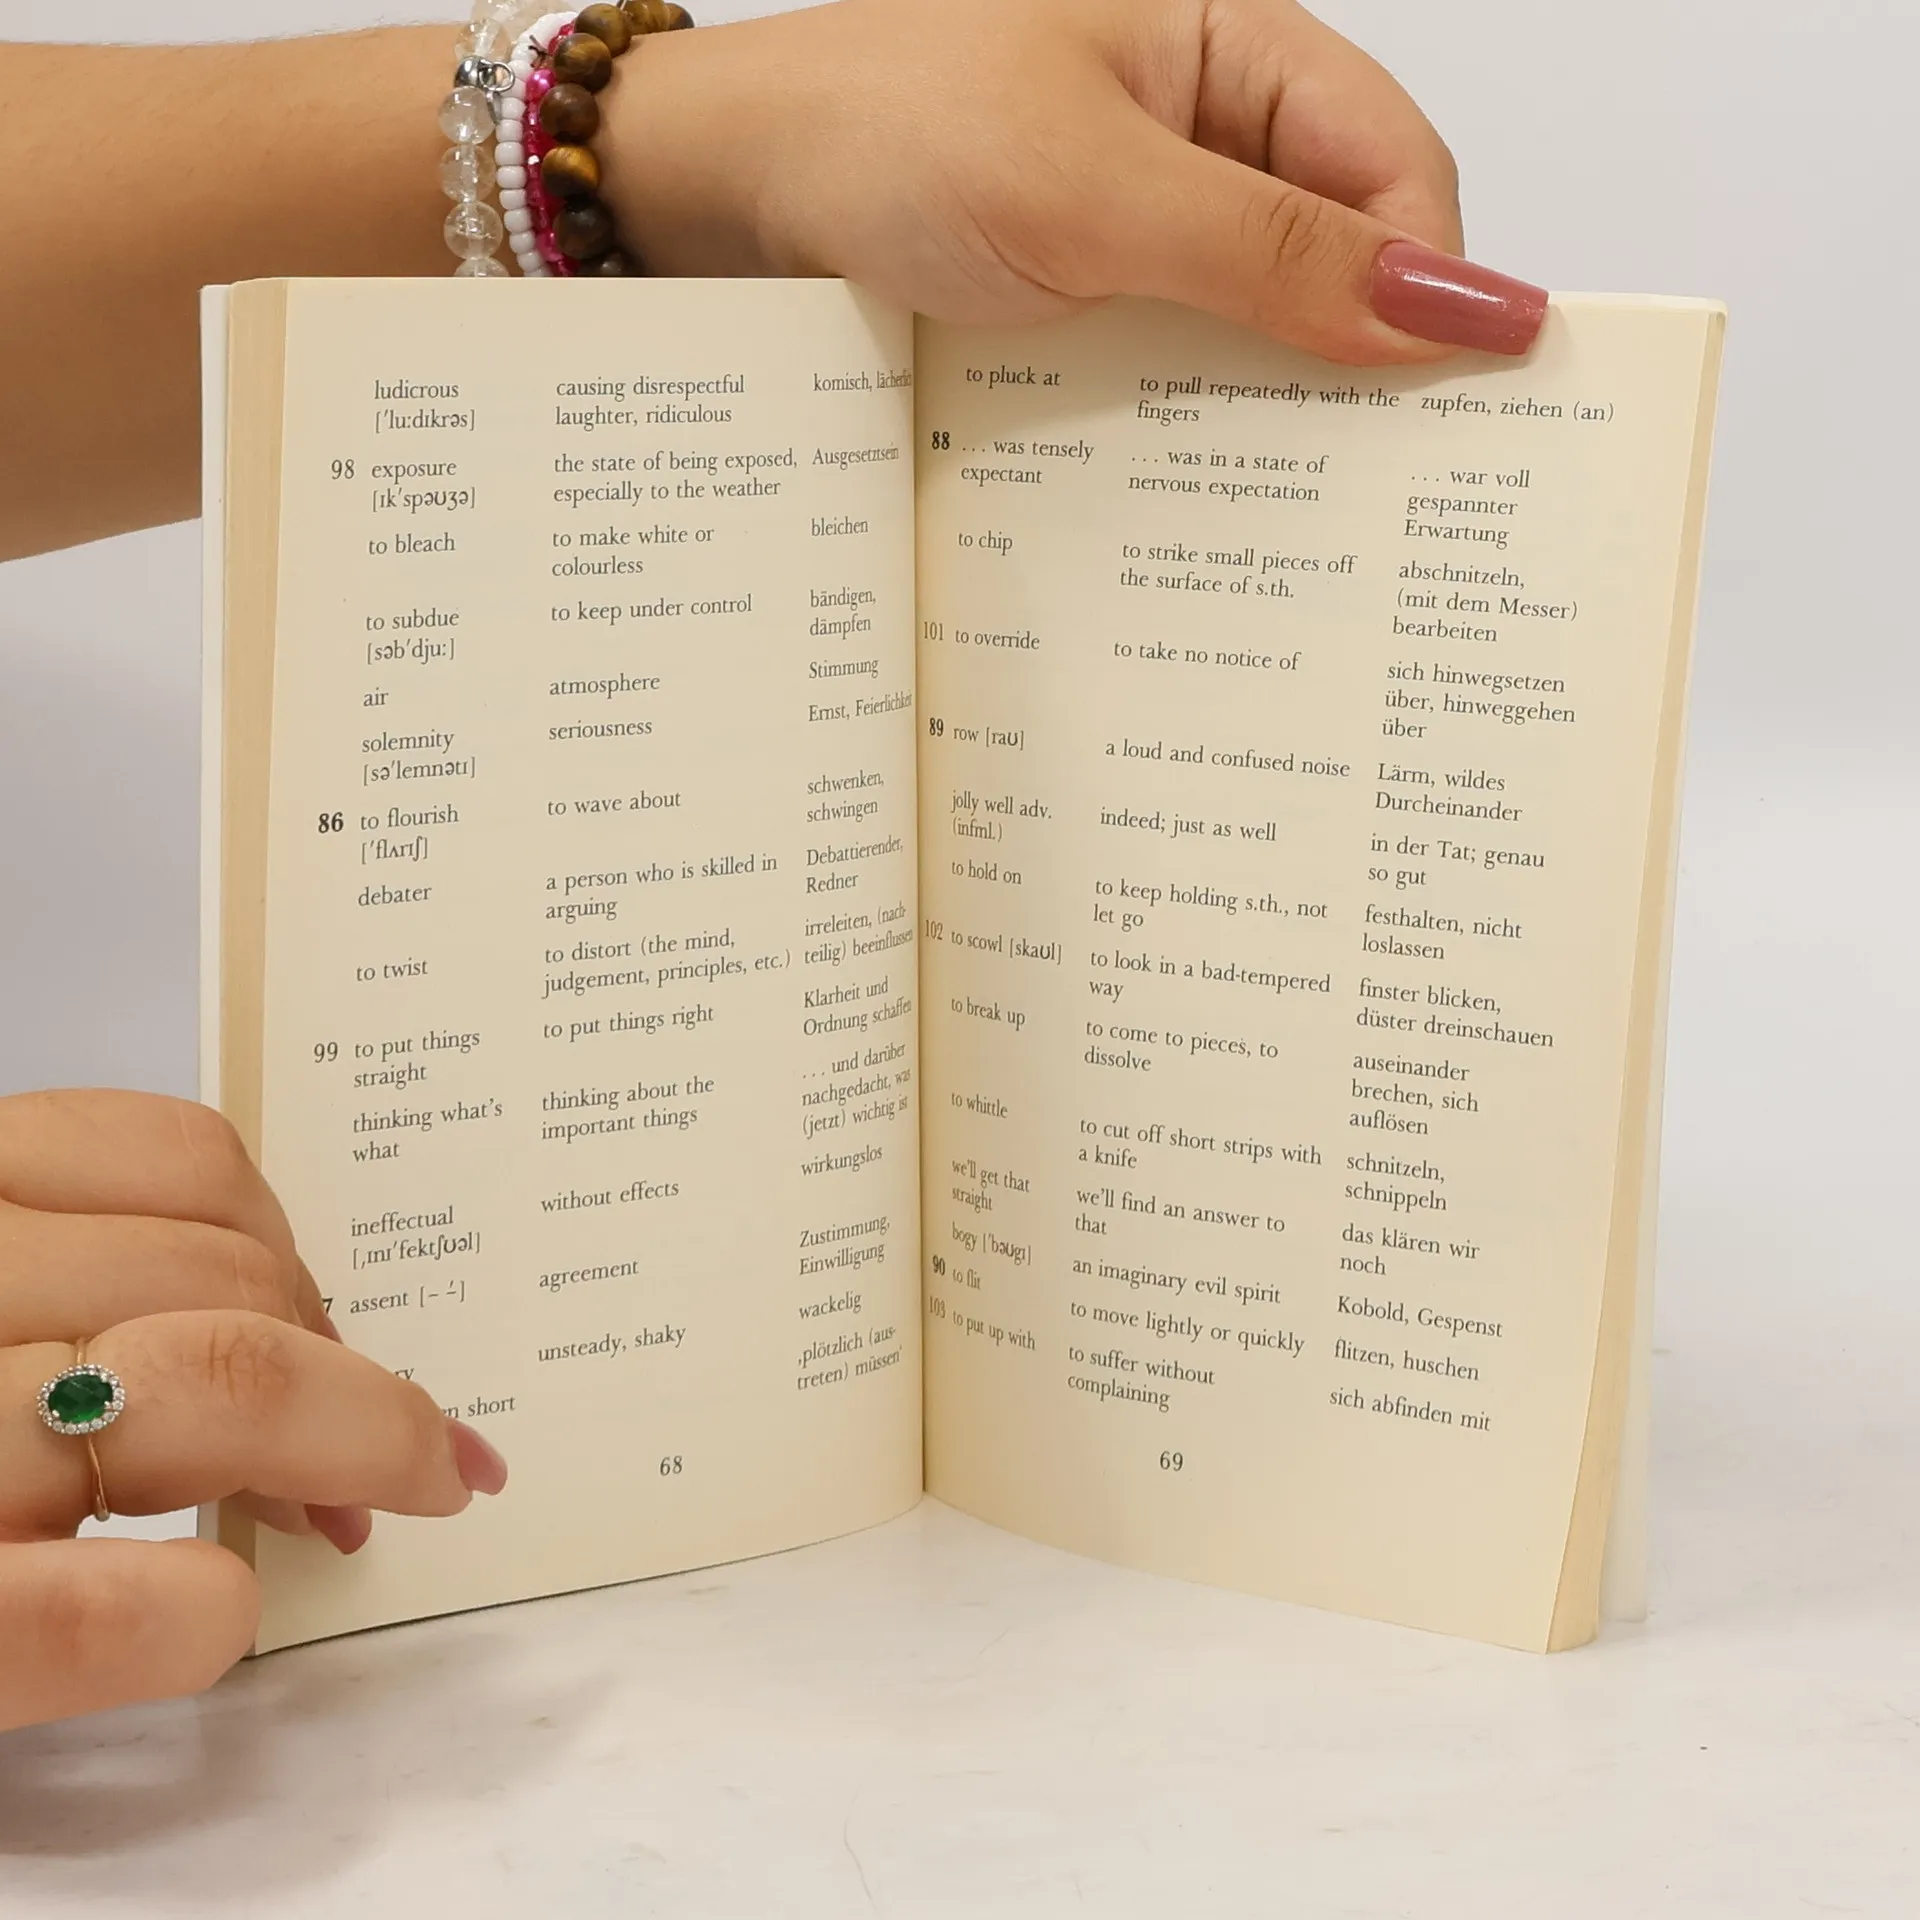 ludicrous causing disrespectful komisch,
['lu:dɪkrəs] laughter, ridiculous
98 exposure the state of being exposed, Ausgesetztsein
[ɪk'spəʊʒə] especially to the weather
to bleach to make white or bleichen
colourless
to subdue to keep under control bändigen,
[səb'dju:] dämpfen
air atmosphere Stimmung
solemnity seriousness Ernst, Feierlichkeit
[sə'lemnətɪ]
86 to flourish to wave about schwenken,
['flʌrɪʃ] schwingen
debater a person who is skilled in Debattierender,
arguing Redner
to twist to distort (the mind, irreleiten, (nach-
judgement, principles, etc.) teilig) beeinflussen
99 to put things to put things right Klarheit und
straight Ordnung schaffen
thinking what's thinking about the . . . und darüber
what important things nachgedacht, was
(jetzt) wichtig ist
ineffectual without effects wirkungslos
[ˌɪnɪ'fektʃʊəl]
7 assent [– –́] agreement Zustimmung,
Einwilligung
unsteady, shaky wackelig
short ‚plötzlich (aus-
treten) müssen'
68
to pluck at to pull repeatedly with the zupfen, ziehen (an)
fingers
88 . . . was tensely . . . was in a state of . . . war voll
expectant nervous expectation gespannter
Erwartung
to chip to strike small pieces off abschnitzeln,
the surface of s.th. (mit dem Messer)
bearbeiten
101 to override to take no notice of sich hinwegsetzen
über, hinweggehen
über
89 row [raʊ] a loud and confused noise Lärm, wildes
Durcheinander
jolly well adv. indeed; just as well in der Tat; genau
(infml.) so gut
to hold on to keep holding s.th., not festhalten, nicht
let go loslassen
102 to scowl [skaʊl] to look in a bad-tempered finster blicken,
way düster dreinschauen
to break up to come to pieces, to auseinander
dissolve brechen, sich
auflösen
to whittle to cut off short strips with schnitzeln,
a knife schnippeln
we'll get that we'll find an answer to das klären wir
straight that noch
bogy ['bəʊgɪ] an imaginary evil spirit Kobold, Gespenst
90 to flit to move lightly or quickly flitzen, huschen
103 to put up with to suffer without sich abfinden mit
complaining
69